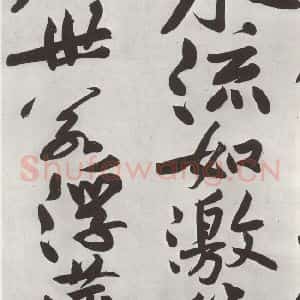 流如激
世若浮
Shufawang.CN